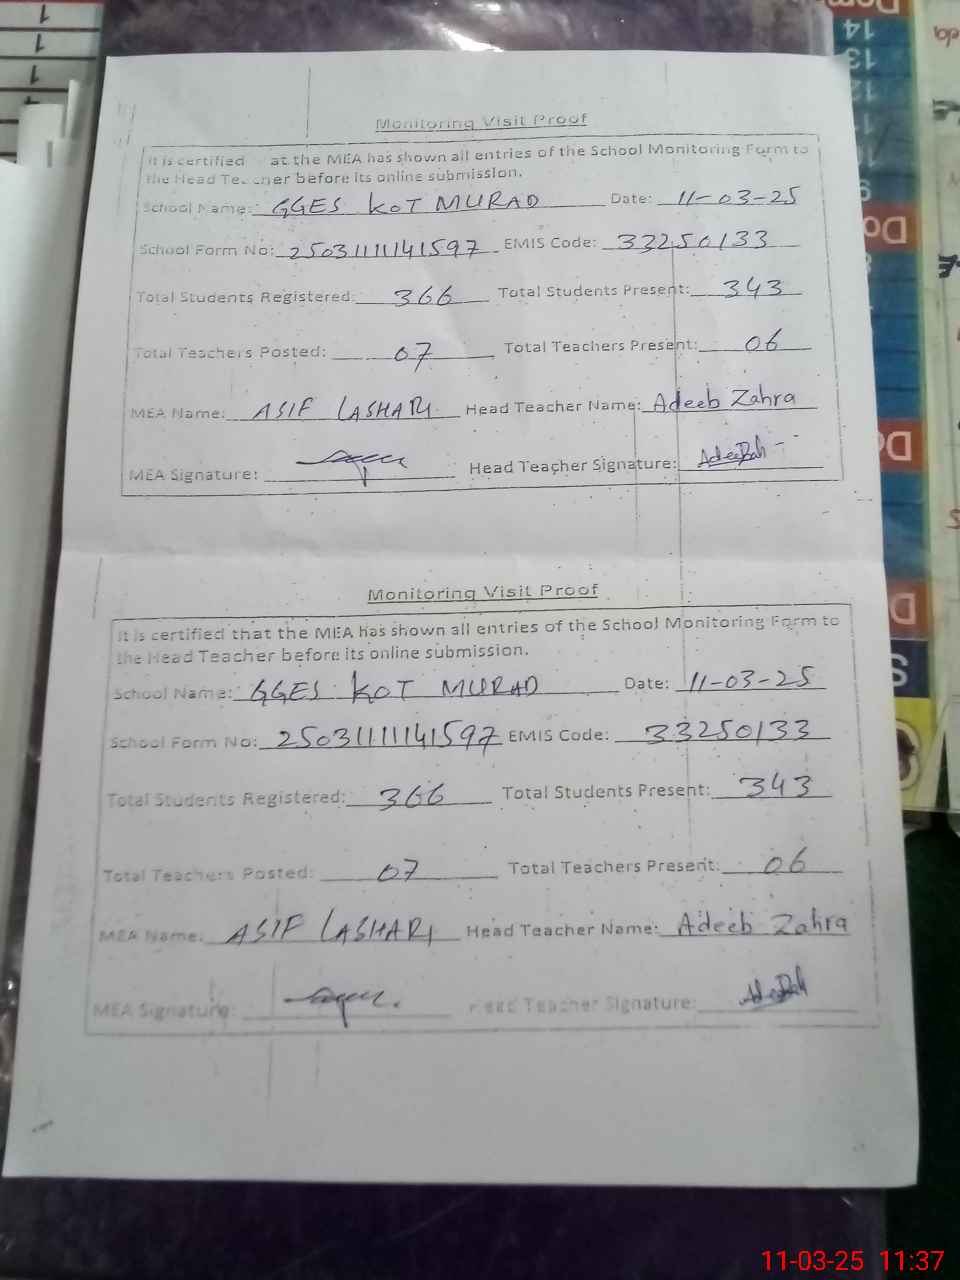 Monitoring Visit Proof
It is certified at the MEA has shown all entries of the School Monitoring Form to
the Head Teacher before its online submission.
School Name: GGES KOT MURAD Date: 11-03-25
School Form No: 25031111141597 EMIS Code: 33250133
Total Students Registered: 366 Total Students Present: 343
Total Teachers Posted: 07 Total Teachers Present: 06
MEA Name: ASIF LASHARI Head Teacher Name: Adeeb Zahra
MEA Signature: Head Teacher Signature:
Monitoring Visit Proof
It is certified that the MEA has shown all entries of the School Monitoring Form to
the Head Teacher before its online submission.
School Name: GGES KOT MURAD Date: 11-03-25
School Form No: 25031111141597 EMIS Code: 33250133
Total Students Registered: 366 Total Students Present: 343
Total Teachers Posted: 07 Total Teachers Present: 06
MEA Name: ASIF LASHARI Head Teacher Name: Adeeb Zahra
MEA Signature: Head Teacher Signature:
11-03-25 11:37